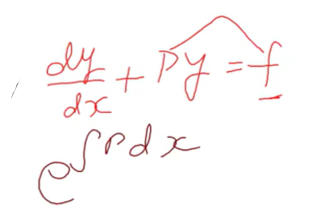 dy/dx + Py = f
e^∫Pdx